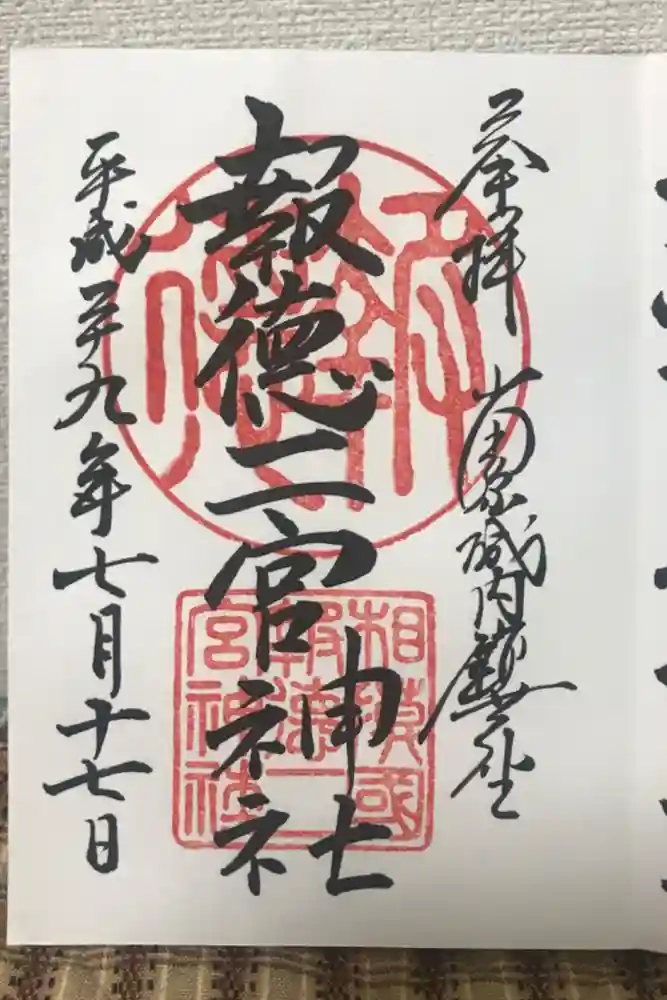 奉拝　小田原城内鎮座
報徳二宮神社
平成二十九年七月十七日
報徳
相模國
報徳二
宮神社